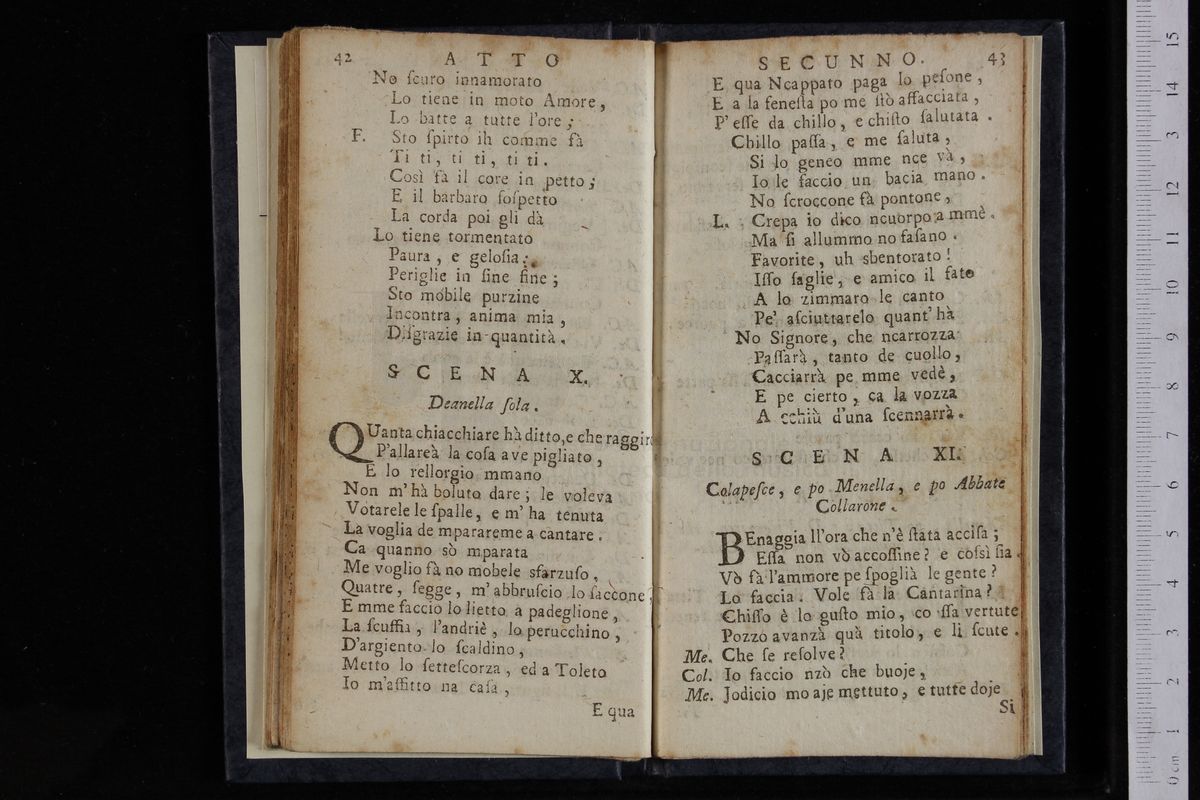 42 ATTO
No ſcuro innamorato
Lo tiene in moto Amore,
Lo batte a tutte l'ore;
F. Sto ſpirto ih comme fà
Ti ti, ti ti, ti ti.
Così fà il core in petto;
E il barbaro ſoſpetto
La corda poi gli dà
Lo tiene tormentato
Paura, e geloſia;
Periglie in ſine fine;
Sto mobile purzine
Incontra, anima mia,
Diſgrazie in quantità.
SCENA X.
Deanella ſola.
QUanta chiacchiare hà ditto, e che raggiro
P'allareà la coſa ave pigliato,
E lo rellorgio mmano
Non m'hà boluto dare; le voleva
Votarele le ſpalle, e m'ha tenuta
La voglia de mparareme a cantare.
Ca quanno sò mparata
Me voglio fà no mobele sfarzuſo,
Quatre, ſegge, m'abbruſcio lo ſaccone,
E mme faccio lo lietto a padeglione,
La ſcuffia, l'andriè, lo perucchino,
D'argiento lo ſcaldino,
Metto lo ſetteſcorza, ed a Toleto
Io m'affitto na caſa,
E qua
SECUNNO. 43
E qua Ncappato paga lo peſone,
E a la feneſta po me ſtò affacciata,
P'eſſe da chillo, e chiſto ſalutata.
Chillo paſſa, e me ſaluta,
Si lo geneo mme nce và,
Io le faccio un bacia mano.
No ſcroccone fà pontone,
L. Crepa io dico ncuorpo a mmè.
Ma ſi allummo no faſano.
Favorite, uh sbentorato!
Iſſo ſaglie, e amico il fato
A lo zimmaro le canto
Pe' aſciuttarelo quant'hà
No Signore, che ncarrozza
Paſſarà, tanto de cuollo,
Cacciarrà pe mme vedè,
E pe cierto, ca la vozza
A cchiù d'una ſcennarrà.
SCENA XI.
Colapeſce, e po Menella, e po Abbate
Collarone.
BEnaggia ll'ora che n'è ſtata acciſa;
Eſſa non vò accoſſine? e coſsì ſia.
Vò fà l'ammore pe ſpoglià le gente?
Lo faccia. Vole fà la Cantarina?
Chiſſo è lo guſto mio, co ſſa vertute
Pozzo avanzà quà titolo, e li ſcute.
Me. Che ſe reſolve?
Col. Io faccio nzò che buoje,
Me. Jodicio mo aje mettuto, e tutte doje
Si
0 cm 1 2 3 4 5 6 7 8 9 10 11 12 13 14 15